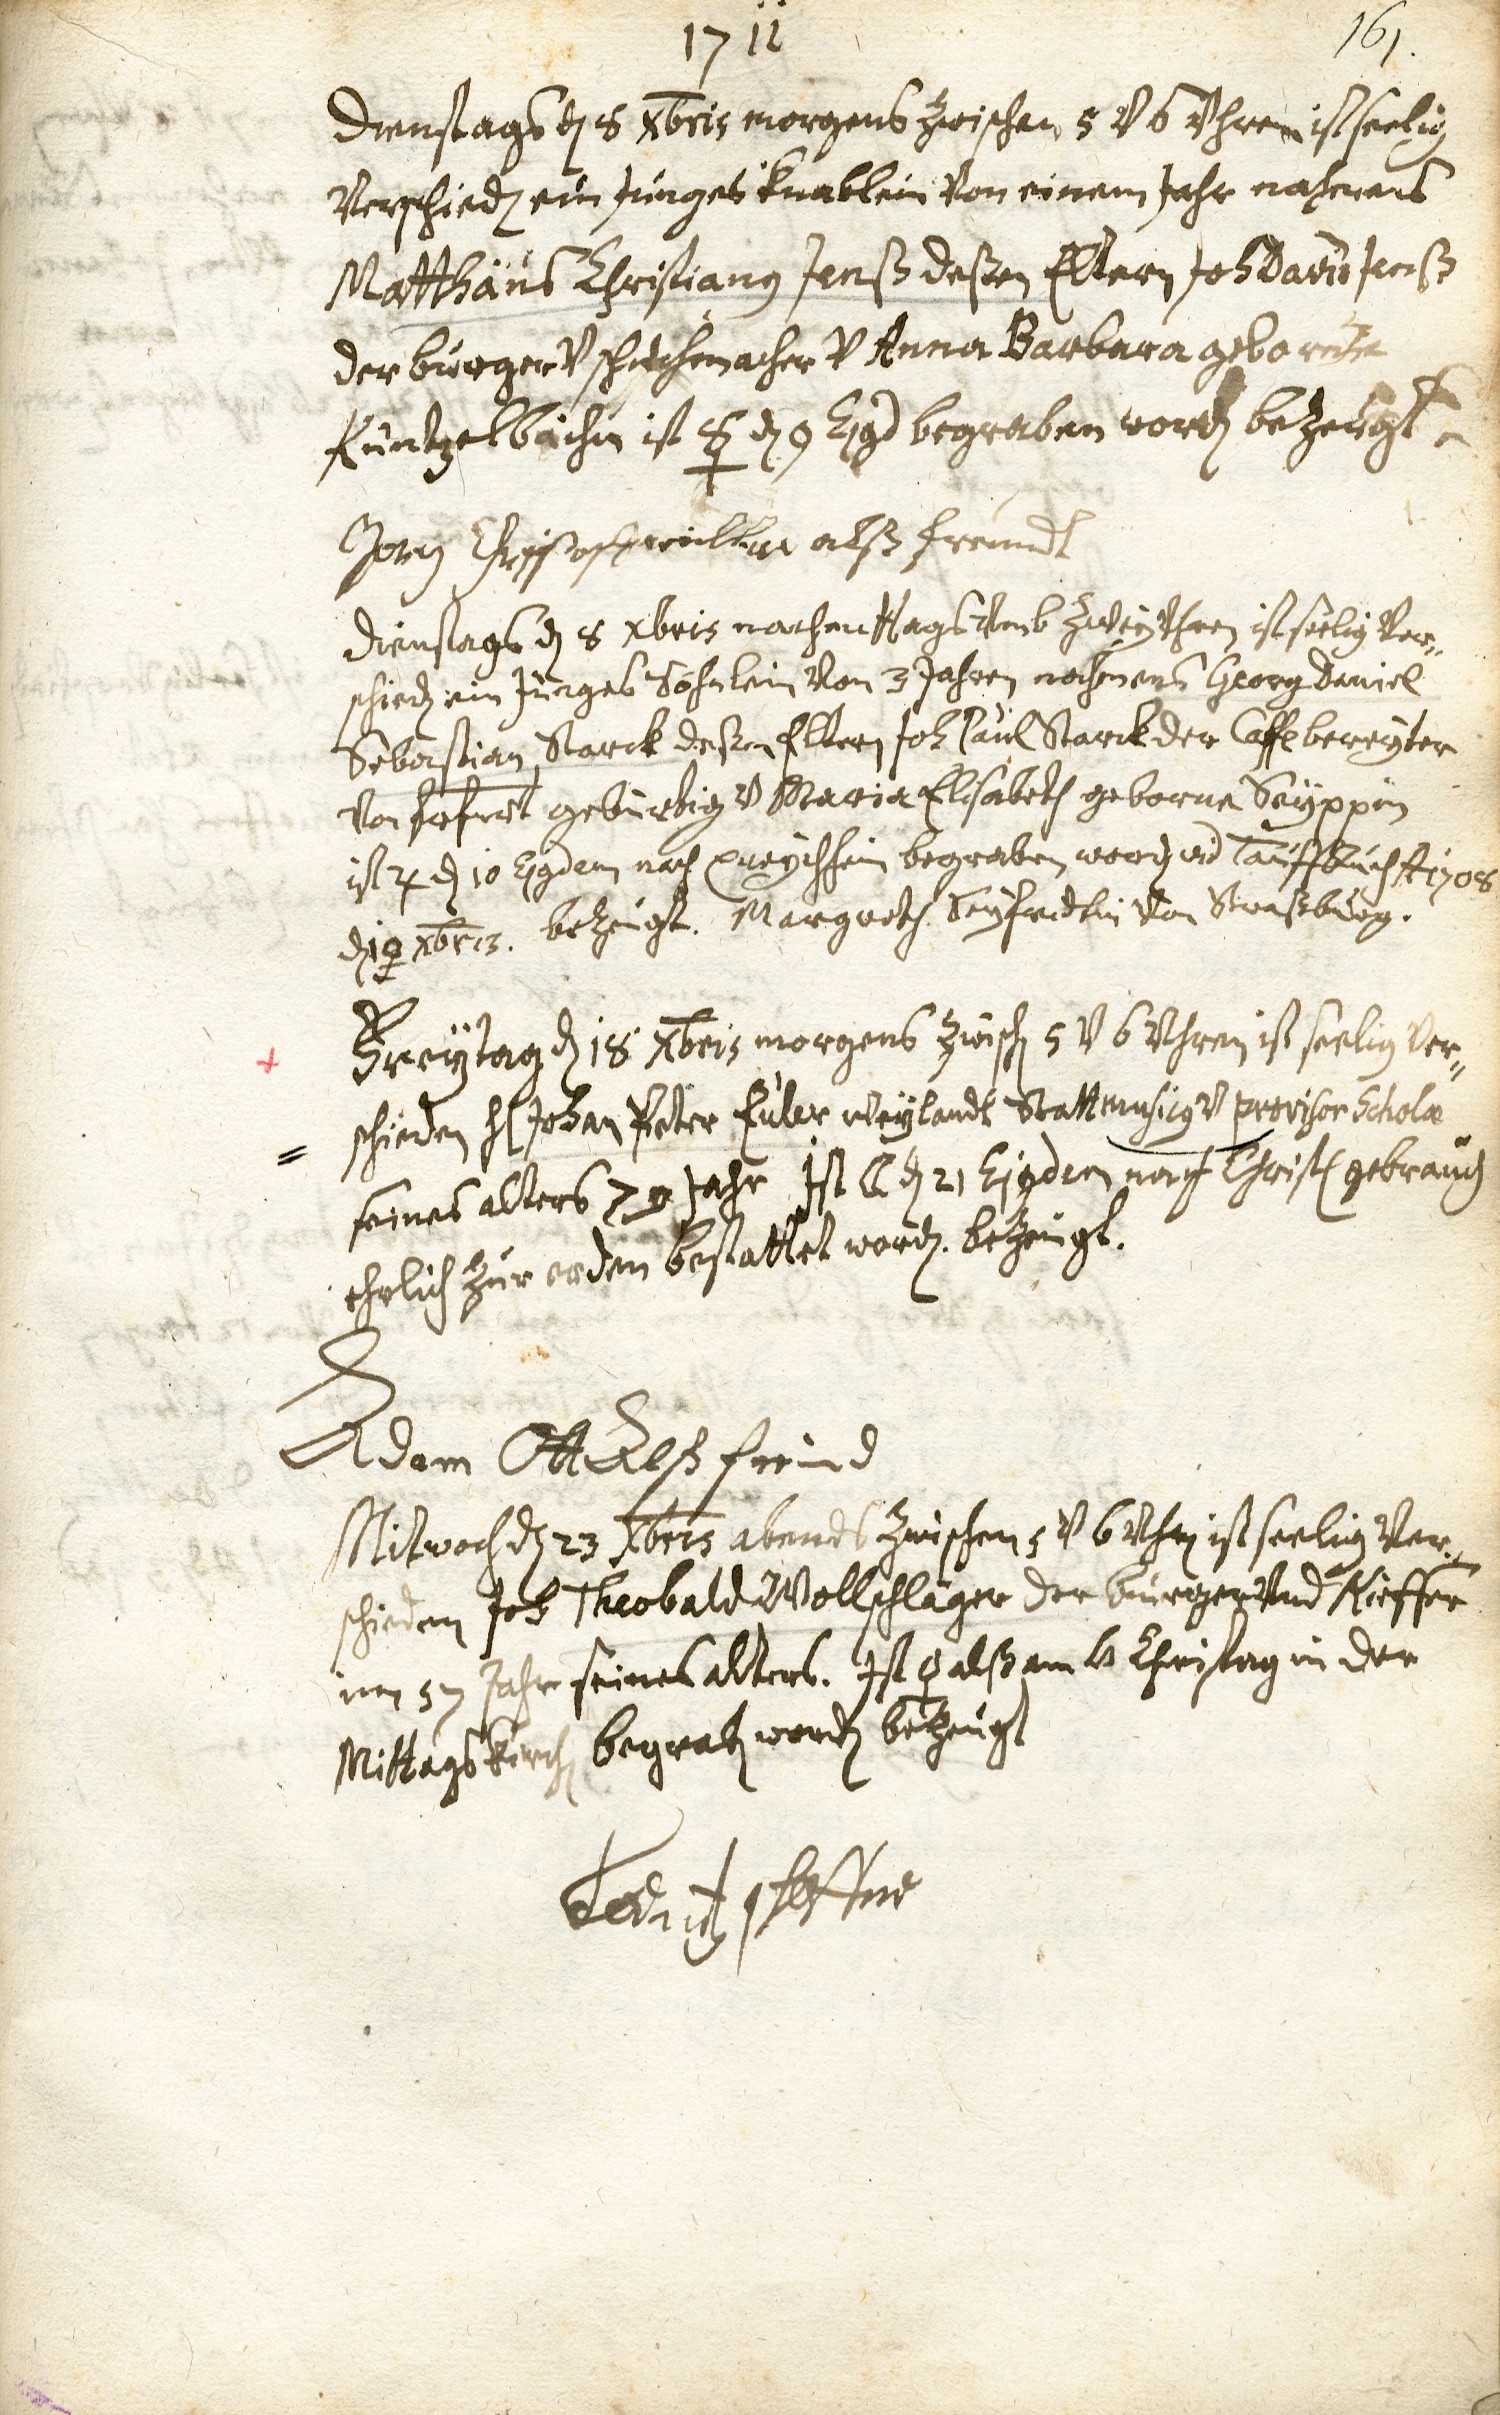 1711
161.
Dienstags d 8 Xbris morgens zwischen 5 V 6 Vhren ist seelig
Verschied ein Junges knäblein Von einem Jahr nahmens
Matthäus Christianus Jenß deßen Eltern Joh David Jenß
der burger V schuchmacher V Anna Barbara geborne
Küntzelbächin ist ☿ d 9 Ejgd begraben word bezeugt
Jorg als freundt
Dienstags d 8 Xbris nachmittags Vmb Zwey Vhren ist seelig Ver„
schied ein Junges Söhnlein Von 3 Jahren nahmens Georg Daniel
Sebastian Starck deßen Eltern Joh Paul Starck der Caffebereyter
Von Erfurt gebürtig V Maria Elisabeth geborne Seyppin
ist ♃ d 10 Ejgdem nach begraben word vid Tauffbuch A 1708
d 19 Xbris. bezeugt. Margreth Seyfridtin Von Straßburg.
Freytag d 18 Xbris morgens zwisch 5 V 6 Vhren ist seelig Ver„
schieden H Johan Peter Euler weylandt Stattmusicus V provisor Scholæ
seines alters 79 Jahr Ist ☾ d 21 Ejgdem nach Christ gebrauch
ehrlich zur erden bestattet word. bezeugt.
Adam Ott Alß freind
Mitwoch d 23 Xbris abends zwischen 5 V 6 Vhr ist seelig Ver„
schieden Joh Theobald Wollschläger der burger Vnd Kieffer
im 57 Jahr seines alters. Ist ♀ alß am H Christag in der
Mittagskirch begrab word bezeugt